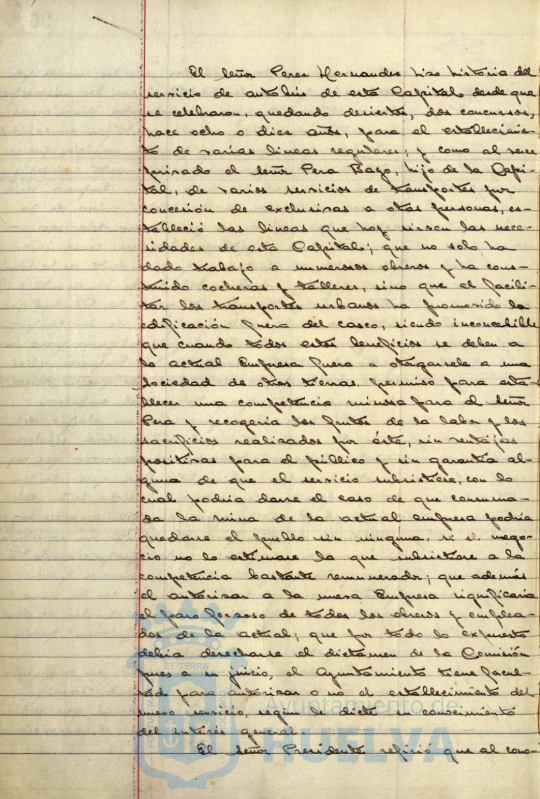 El Señor Perez Hernandez hizo historia del
servicio de autobús de esta Capital desde que
se celebraron, quedando desiertos, dos concursos,
hace ocho o diez años, para el establecimien-
to de varias lineas regulares, y como al verse
privado el Señor Pera Bazo, hijo de la Capi-
tal, de varios servicios de transportes por
concesión de exclusivas a otras personas, es-
tableció las lineas que hoy sirven las nece-
sidades de esta Capital; que no solo ha
dado trabajo a numerosos obreros y ha cons-
truido cocheras y talleres, sino que al facili-
tar los transportes urbanos ha promovido la
edificación fuera del casco, siendo inconcebible
que cuando todos estos beneficios se deben a
la actual Empresa fuera a otorgarsele a una
Sociedad de otras tierras permiso para esta-
blecer una competencia ruinosa para el Señor
Pera y recogería los frutos, de la labor y los
sacrificios realizados por éste, sin ventajas
positivas para el público y sin garantía al-
guna de que el servicio subsistiera, con lo
cual podría darse el caso de que consuma-
da la ruina de la actual empresa podría
quedarse el pueblo sin ninguna, si el nego-
cio no lo estimase la que subsistiere a la
competencia bastante remunerador; que además
el autorizar a la nueva Empresa significaría
el paro forzoso de todos los obreros y emplea-
dos de la actual; que por todo lo expuesto
debía desecharse el dictamen de la Comisión
pues a su juicio, el Ayuntamiento tiene facul-
tad para autorizar o no el establecimiento del
nuevo servicio, según le dicte su conocimiento
del interés general.
El Señor Presidente refirió que al cono-
Ayuntamiento de
HUELVA